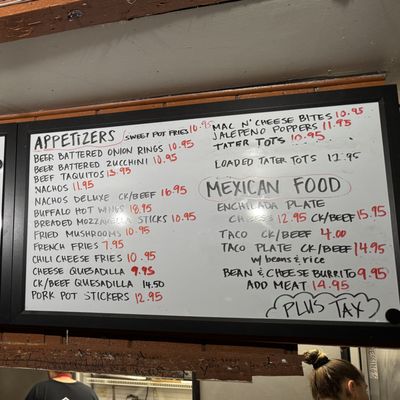 APPETIZERS SWEET POT FRIES 10.95
BEER BATTERED ONION RINGS 10.95
BEER BATTERED ZUCCHINI 10.95
BEEF TAQUITOS 13.95
NACHOS 11.95
NACHOS DELUXE CK/BEEF 16.95
BUFFALO HOT WINGS 18.95
BREADED MOZZARELLA STICKS 10.95
FRIED MUSHROOMS 10.95
FRENCH FRIES 7.95
CHILI CHEESE FRIES 10.95
CHEESE QUESADILLA 9.95
CK/BEEF QUESADILLA 14.50
PORK POT STICKERS 12.95
MAC N' CHEESE BITES 10.95
JALEPENO POPPERS 11.95
TATER TOTS 10.95
LOADED TATER TOTS 12.95
MEXICAN FOOD
ENCHILADA PLATE
CHEESE 12.95 CK/BEEF 15.95
TACO CK/BEEF 4.00
TACO PLATE CK/BEEF 14.95
W/ beans & rice
BEAN & CHEESE BURRITO 9.95
ADD MEAT 14.95
PLUS TAX